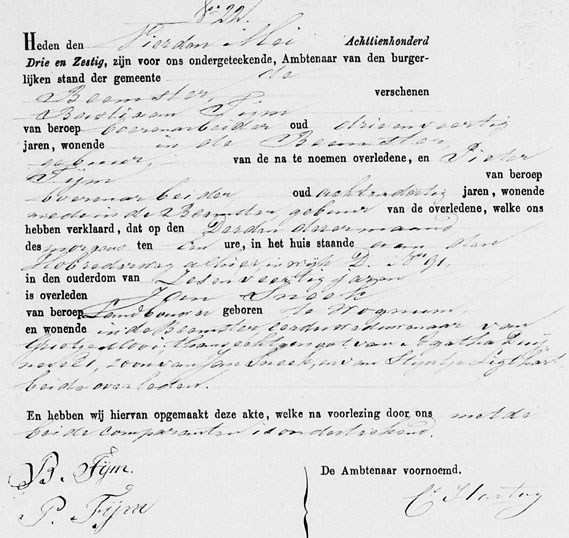 No 22.
Heden den Vierden Mei Achttienhonderd
Drie en Zestig, zijn voor ons ondergeteekende, Ambtenaar van den burger-
lijken stand der gemeente de
Beemster verschenen
Bastiaan Fijm
van beroep boerenarbeider oud drieenveertig
jaren, wonende in de Beemster
gebuur, van de na te noemen overledene, en Pieter
Fijm van beroep
boerenarbeider oud achtendertig jaren, wonende
mede in de Beemster gebuur van de overledene, welke ons
hebben verklaard, dat op den Derden dezer maand
des morgens ten Een ure, in het huis staande aan den
Hobrederweg alhier in wijk D. No 91.
in den ouderdom van Zesenveertig jaren
is overleden Jan Sneek
van beroep Landbouwer geboren te Wognum
en wonende in de Beemster, eerder weduwenaar van
Grietje Looij, thans echtgenoot van Agatha
zoon van Jan Sneek, en van Sijntje Ligthart
beide overleden.
En hebben wij hiervan opgemaakt deze akte, welke na voorlezing door ons met de
beide comparanten is onderteekend.
B. Fijm.
P. Fijm
De Ambtenaar voornoemd.
Cs Hartog